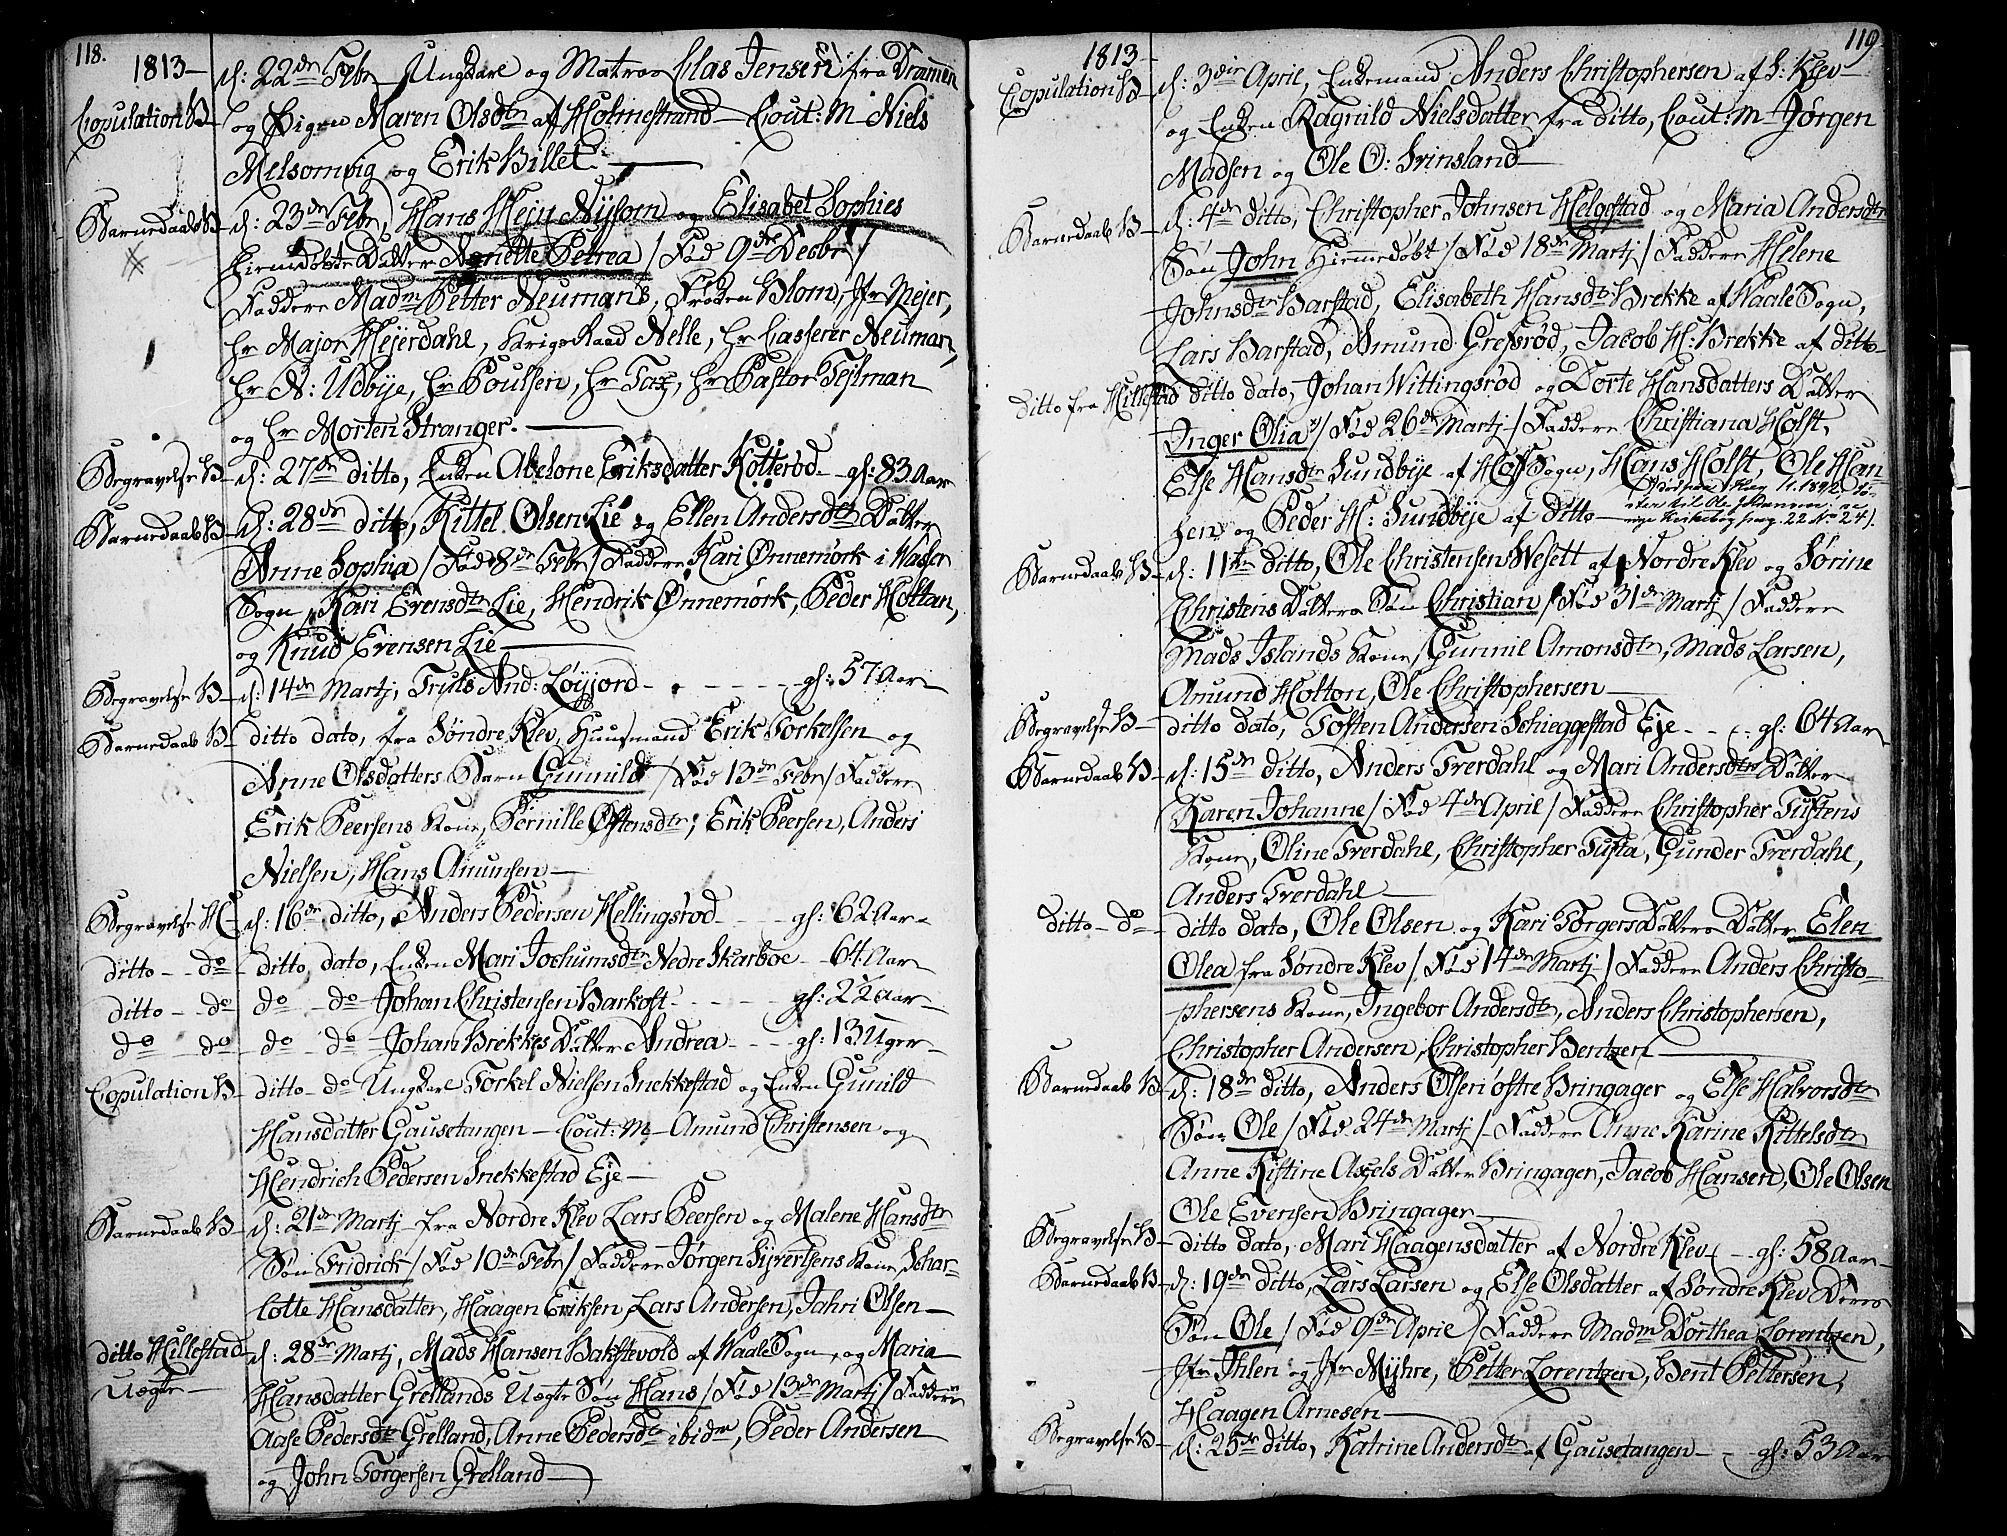 118.
1813
Copulation B d: 22de Febr Ungkarl og Matros Clas Jensen fra Drammen
og Pigen Maren Olsdtr af Holmestrand Cout: M Niels
Melsomvig og Erik Billet
Barnedaab B d: 23de Febr, Hans Heju Nysom og Elisabet Sophies
hiemdøbte Datter Nariette Petrea / Fød 9de Decbr /
Faddere Madm Petter Neumans, Frøken Blom, Jfr Mejer,
Hr Major Hejerdahl, Krigsraad Nelle, Hr Casserer Neuman,
Hr N: Udbye, Hr Poulsen, Hr Fax, Hr Pastor Tejlman
og Hr Morten Stranger.
Begravelse B d: 27de ditto, Enken Abelone Eriksdatter Kotterød gl: 83 Aar
Barnedaab B d: 28de ditto, Kittel Olsen Lie og Ellen Andersdtr Datter
Anne Sophia / Fød 8de Febr / Faddere Kari Ønnemørk i Waaler
Sogn, Kari Evensdtr Lie, Hendrik Ønnemørk, Peder Holtan,
og Knud Evensen Lie
Begravelse B d: 14de Martj, Truls And: Løyjord gl: 57 Aar
Barnedaab B ditto dato, fra Søndre Klev, Huusmand Erik Torkelsen og
Anne Olsdatters Barn Gunnild / Fød 13de Febr / Faddere
Erik Peersens Kone, Pernille Østensdtr, Erik Peersen, Anders
Nielsen, Hans Amunsen
Begravelse H d: 16de ditto, Anders Pedersen Hellingsrød gl: 62 Aar
ditto do ditto dato, Enken Mari Jochumsdtr Nedre Skarboe 64 Aar
ditto do do do Johan Christensen Barkost gl: 22 Aar
do do do do Johan Brekkes Datter Andrea gl: 13 Uger
Copulation B ditto do Ungkarl Torkel Nielsen Snekkestad og Enken Gunild
Hansdatter Gausetangen Cout: M Amund Christensen og
Hendrich Pedersen Snekkestad Eje
Barnedaab B d: 21de Martj fra Nordre Klev Lars Peersen og Malene Hansdtr
Søn Fridrich / Fød 10de Febr / Faddere Jørgen Syvertsens Kone, Schar-
lotte Hansdatter, Haagen Eriksen, Lars Andersen, Jahri Olsen
ditto Hillestad d: 28de Martj, Mads Hansen Bakstevold af Waale Sogn, og Maria
Uægte Hansdatter Grellands Uægte Søn Hans / Fød 13de Martj / Faddere
Aase Pedersdtr Grelland, Anne Pedersdtr ibidm, Peder Andersen
og John Torgersen Grelland
119
1813
Copulation B d: 3die April, Enkemand Anders Christophersen af S: Klev
og Enken Ragnild Nielsdatter fra ditto, Cout: M Jørgen
Madsen og Ole O: Svinsland
Barnedaab B d: 4de ditto, Christopher Johnsen Helgestad og Maria Andersdtr
Søn John Hiemdøbt / Fød 18de Martj / Faddere Helene
Johnsdtr Barstad, Elisabeth Hansdtr Brekke af Waale Sogn,
Lars Barstad, Amund Grefsrød, Jacob H: Brekke af ditto
ditto fra Hillestad ditto dato, Johan Wittingsrød og Dorte Hansdatters Datter
Inger Olia / Fød 26de Martj / Faddere Christiana Holst,
Else Hansdtr Sundbye af Hoff Sogn, Hans Holst, Ole Han-
sen og Peder H: Sundbye af ditto
Barnedaab B d: 11te ditto, Ole Christensen Wesett af Nordre Klev og Sørine
Christens Datters Søn Christian / Fød 31de Martj / Faddere
Mads Islands Kone, Gunnil Amonsdtr, Mads Larsen,
Amund Holton, Ole Christophersen
Begravelse B ditto dato, Tosten Andersen Schieggestad Eje gl: 64 Aar
Barnedaab B d: 15de ditto, Anders Trerdahl og Mari Andersdtrs Datter
Karen Johanne / Fød 4de April / Faddere Christopher Tuftens
Kone, Oline Trerdahl, Christopher Tufta, Gunder Trerdahl,
Anders Trerdahl
ditto do ditto dato, Ole Olsen og Kari Torgersdatters Datter Elen
Olea fra Søndre Klev / Fød 14de Martj / Faddere Anders Christo-
phersens Kone, Ingebor Andersdtr, Anders Christophersen,
Christopher Andersen, Christopher Bentzen
Barnedaab B d: 18de ditto, Anders Olsen østre Bringager og Else Halvorsdtr
Søn Ole / Fød 24de Martj / Faddere Anne Karine Kittelsdtr
Anne Kistine Axels Datter Bringager, Jacob Hansen, Ole Olsen
Ole Evensen Bringager
Begravelse B ditto dato, Mari Haagensdatter af Nordre Klev gl: 58 Aar
Barnedaab B d: 19de ditto, Lars Larsen og Else Olsdatter af Søndre Klev Deres
Søn Ole / Fød 9de April / Faddere Madm Dorthea Lorentzen,
Jfr Ihlen og Jfr Myhre, Petter Lorentzen, Bent Pettersen,
Haagen Arnesen
Begravelse B d: 25de ditto, Katrine Andersdtr af Gausetangen gl: 53 Aar